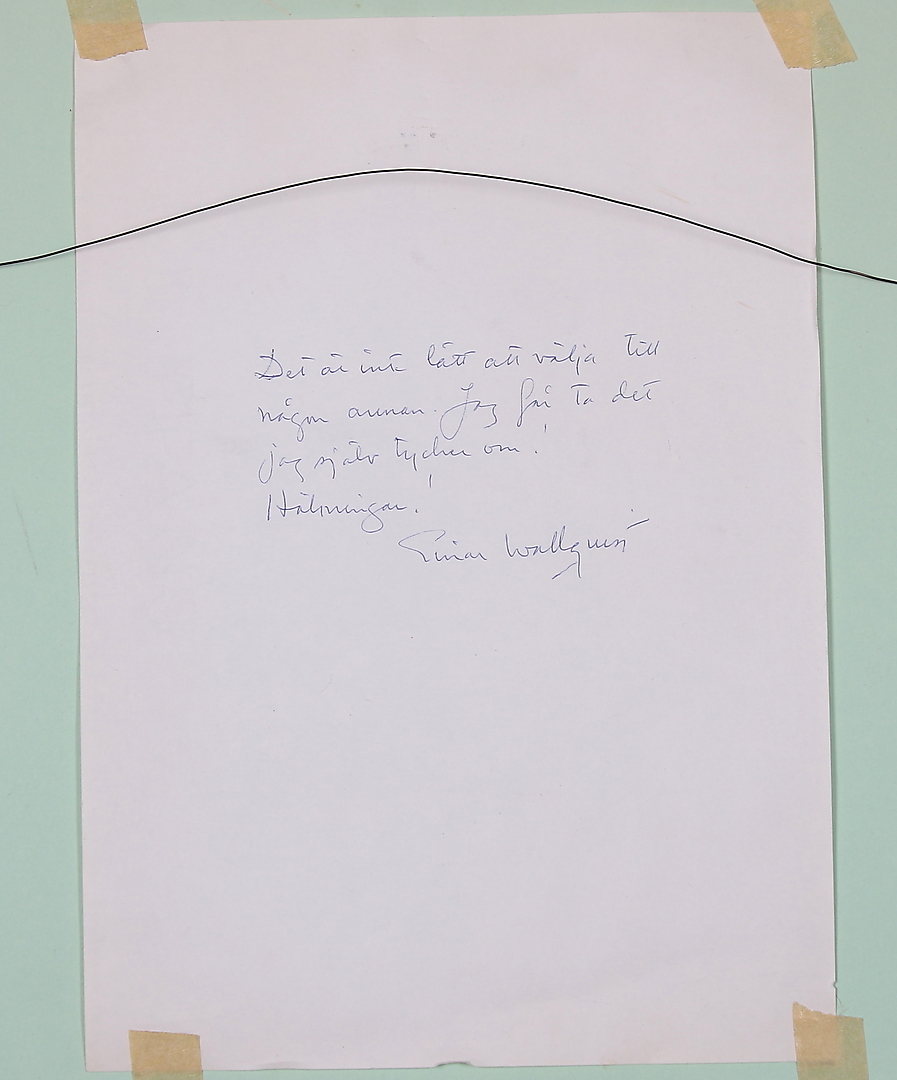 Det är inte lätt att välja till
någon annan. Jag får ta det
jag själv tycker om!
Hälsningar!
Einar Wallquist